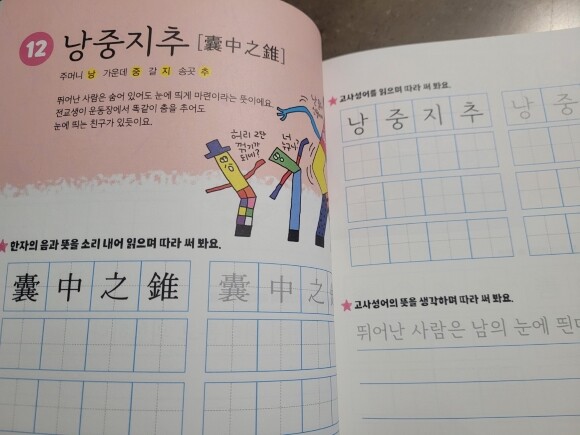 12 낭중지추 [囊中之錐]
주머니 낭 가운데 중 갈 지 송곳 추
뛰어난 사람은 숨어 있어도 눈에 띄게 마련이라는 뜻이에요.
전교생이 운동장에서 똑같이 춤을 추어도
눈에 띄는 친구가 있듯이요.
허리 2단
꺾기가
되네?
★ 한자의 음과 뜻을 소리 내어 읽으며 따라 써 봐요.
囊中之錐 囊中之
★ 고사성어를 읽으며 따라 써 봐요.
낭중지추 낭중
★ 고사성어의 뜻을 생각하며 따라 써 봐요.
뛰어난 사람은 남의 눈에 띈